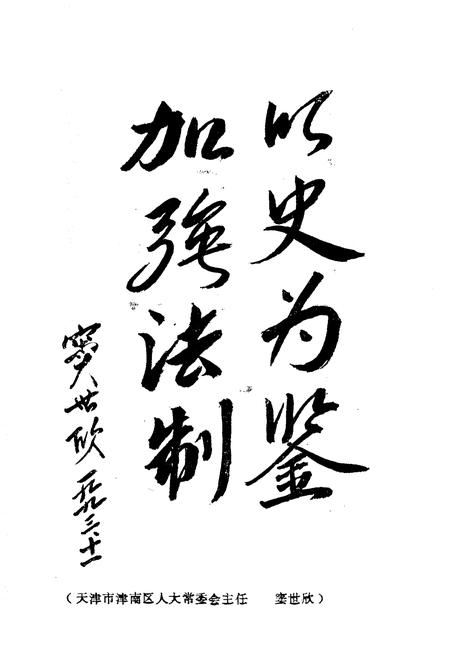 以史为鉴
加强法制
窦世欣
一九九三.十一
(天津市津南区人大常委会主任 窦世欣)